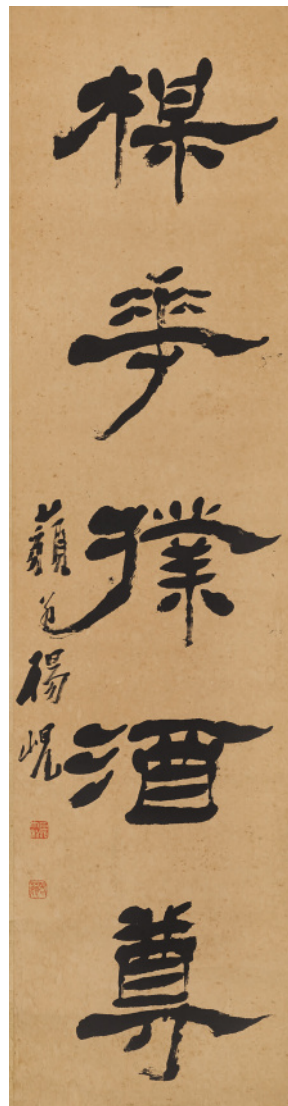 楳華撲酒尊
藐翁楊峴